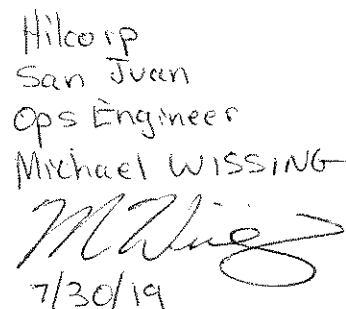 Hilcorp
San Juan
Ops Engineer
Michael WISSING
M Wissing
7/30/19